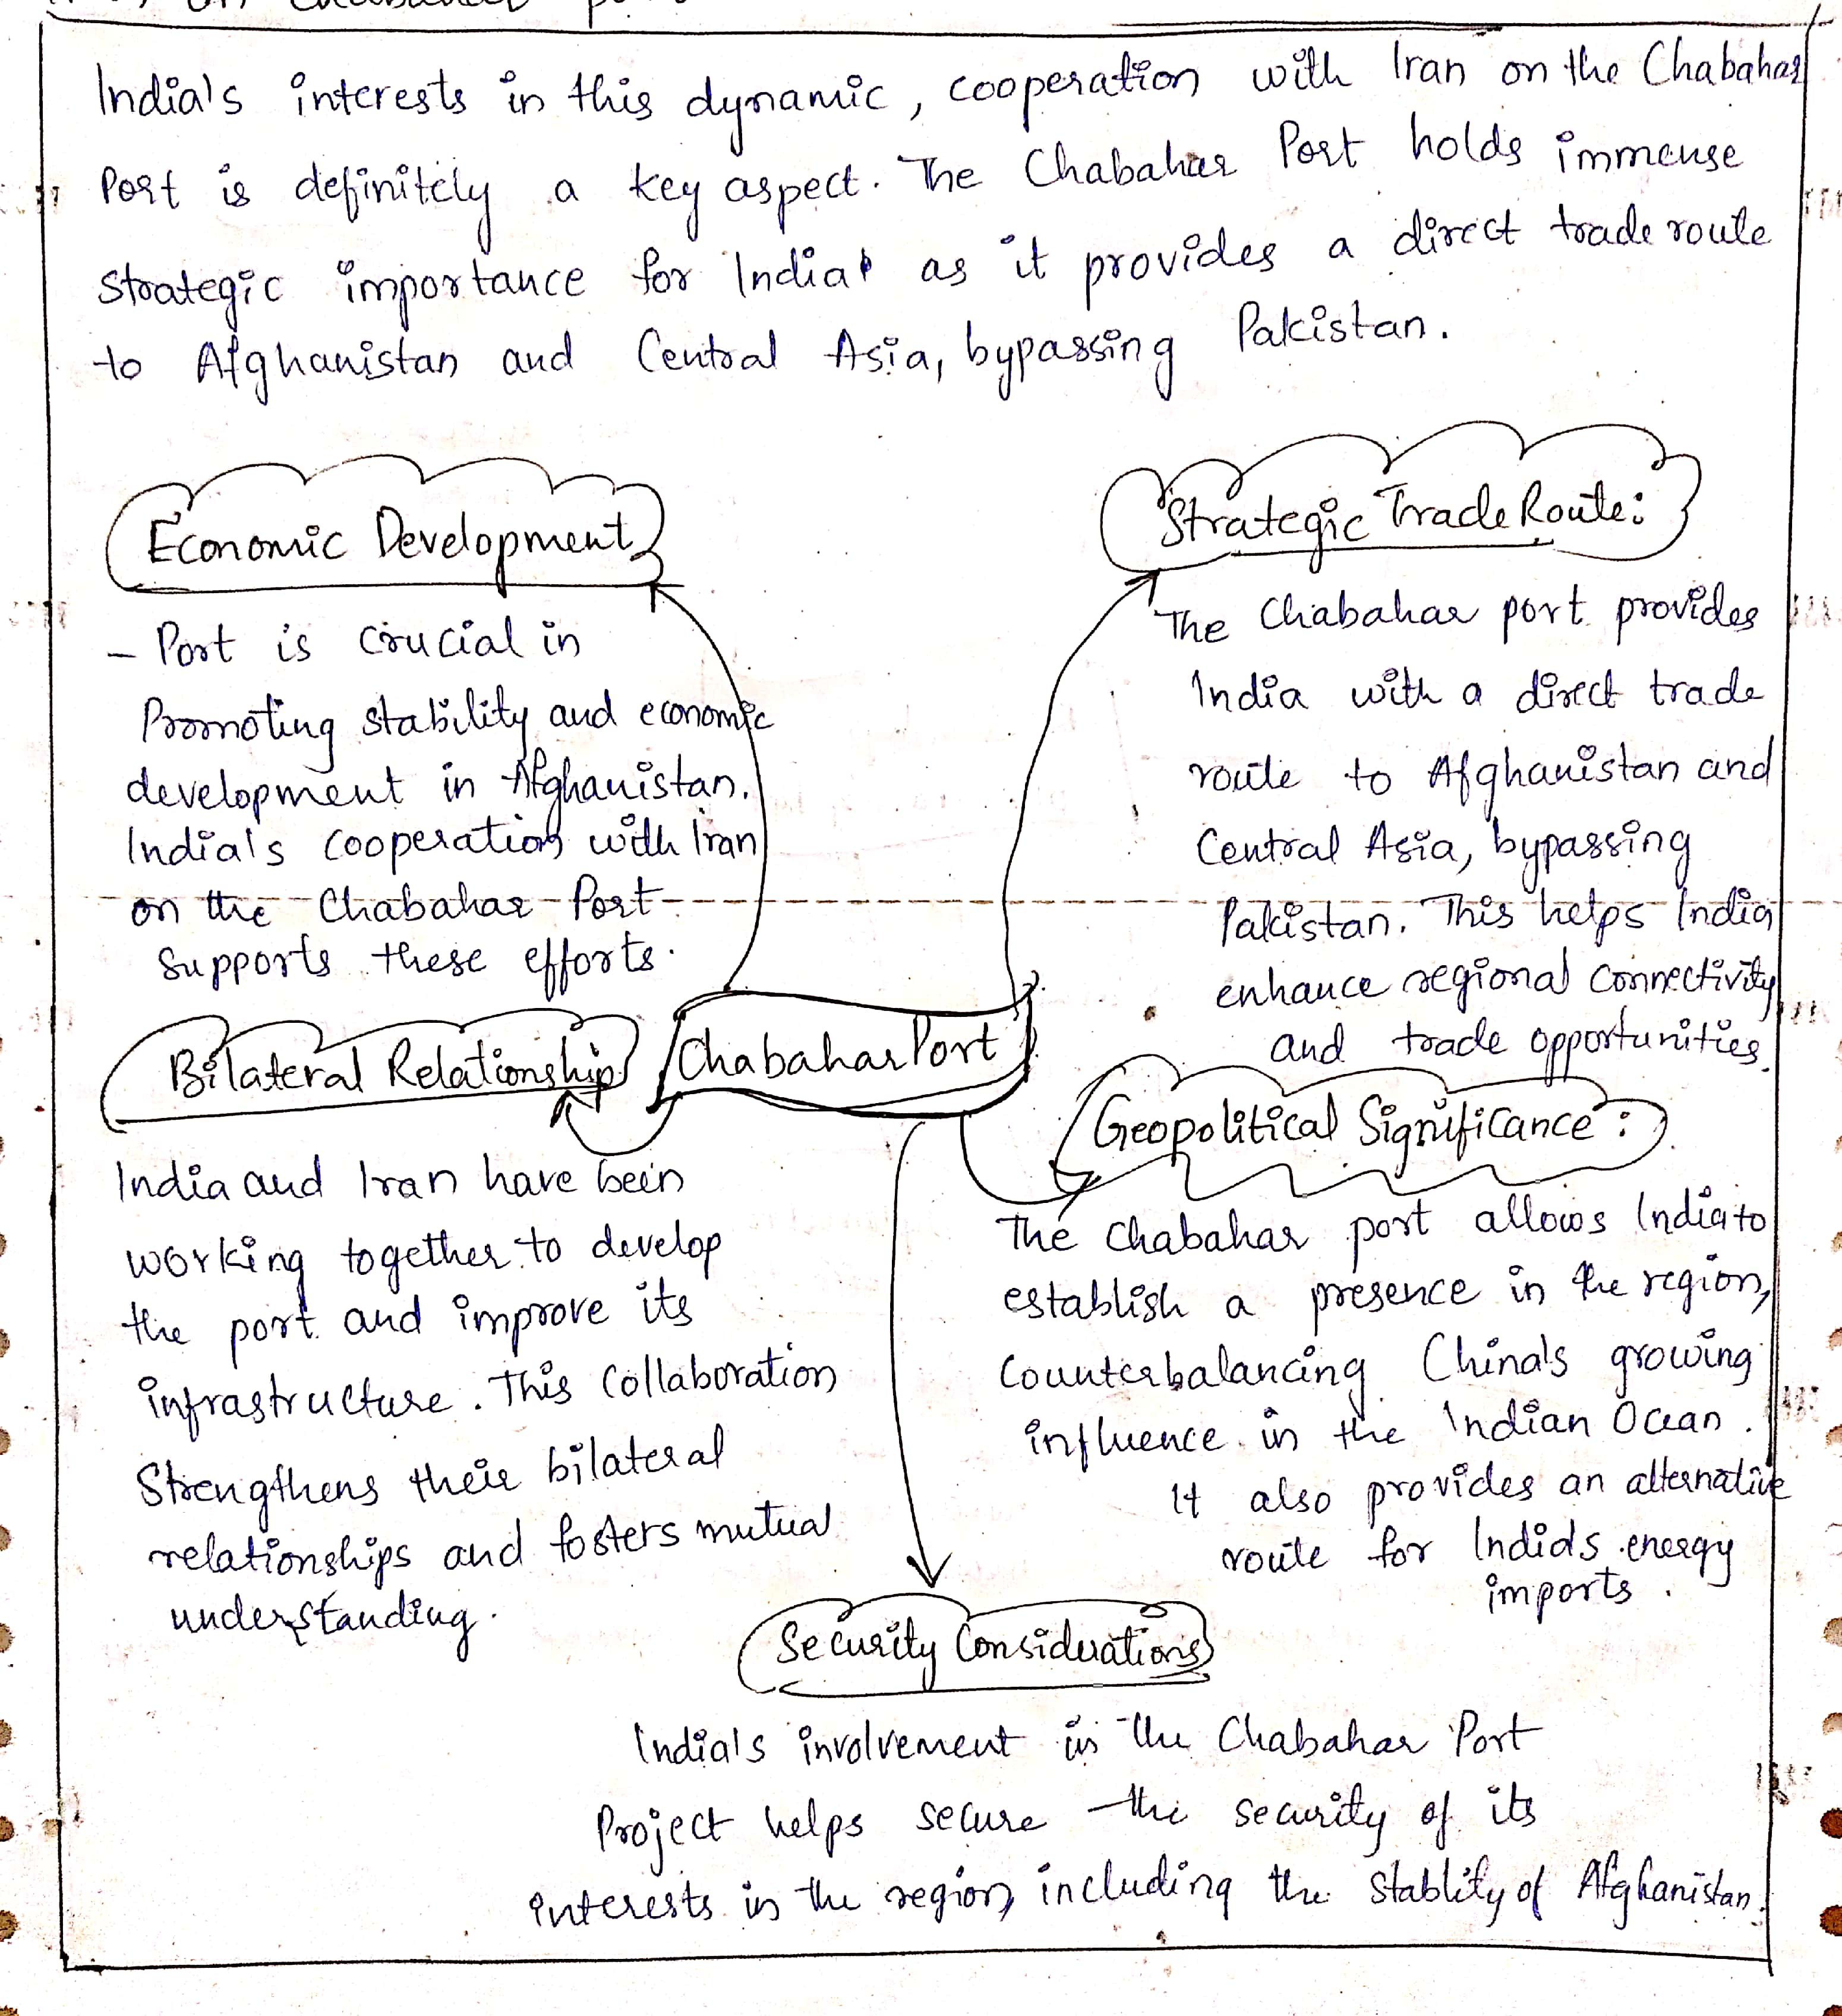 on Chabahar
India's interests in this dynamic, cooperation with Iran on the Chabahar
Port is definitely a key aspect. The Chabahar Port holds immense
strategic importance for India as it provides a direct trade route
to Afghanistan and Central Asia, bypassing Pakistan.
Economic Development
- Port is crucial in
Promoting stability and economic
development in Afghanistan.
India's cooperation with Iran
on the Chabahar Port
Supports these efforts.
Strategic Trade Route:
The Chabahar port provides
India with a direct trade
route to Afghanistan and
Central Asia, bypassing
Pakistan. This helps India
enhance regional connectivity
and trade opportunities.
Chabahar Port
Bilateral Relationship
India and Iran have been
working together to develop
the port and improve its
infrastructure. This Collaboration
Strengthens their bilateral
relationships and fosters mutual
understanding.
Geopolitical Significance:
The Chabahar port allows India to
establish a presence in the region,
Counterbalancing China's growing
influence in the Indian Ocean.
It also provides an alternative
route for India's energy
imports.
Security Considerations
India's involvement in the Chabahar Port
Project helps secure the security of its
interests in the region, including the stablity of Afghanistan.